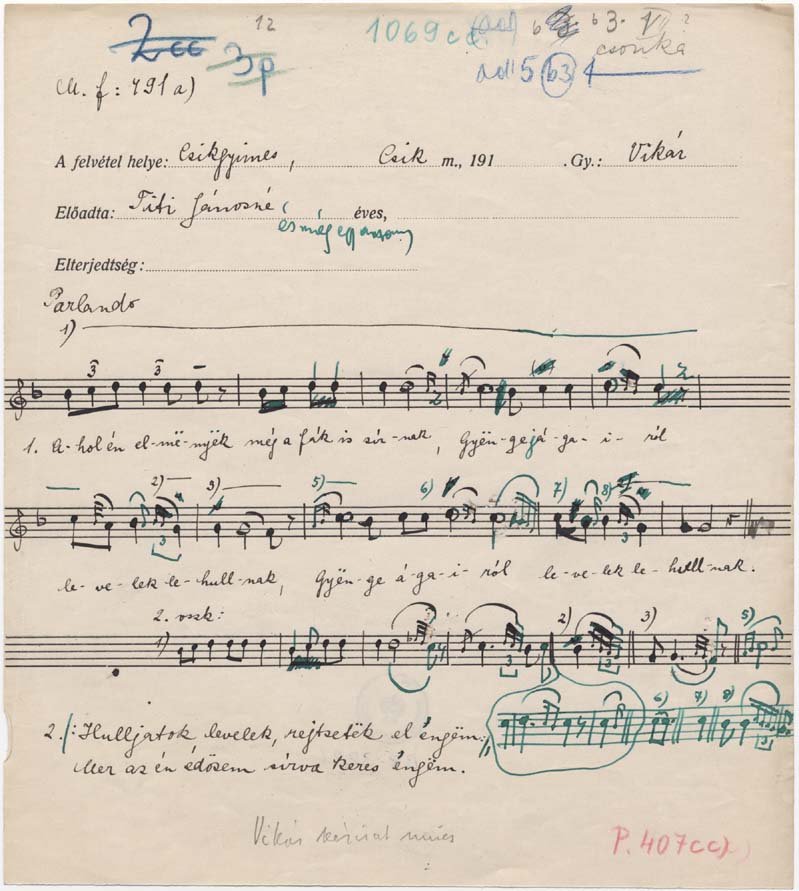 12
1069cc.
b3. V ?
csonka
3p
ad 5 b3 4
M. f: 791 a)
A felvétel helye: Csikgyimes, Csik m., 191 .Gy.: Vikár
Előadta: Titi Jánosné éves,
és még egy asszony
Elterjedtség:
Parlando
1)
3 3
1. A-hol én el-më-nyëk még a fák is sír-nak, Gyën-ge já-ga-i-ról
2) 3) 5) 6) 7) 8)
3 3
le-ve-lek le-hull-nak, Gyën-ge á-ga-i-ról le-ve-lek le-hull-nak.
2. vszk:
1) 2) 3) 5)
3 3
6) 7) 8)
3
2. /: Hulljatok levelek, rejtsetëk el éngëm :/,
Mer az én édösem sírva keres éngëm.
Vikár
P. 407cc)